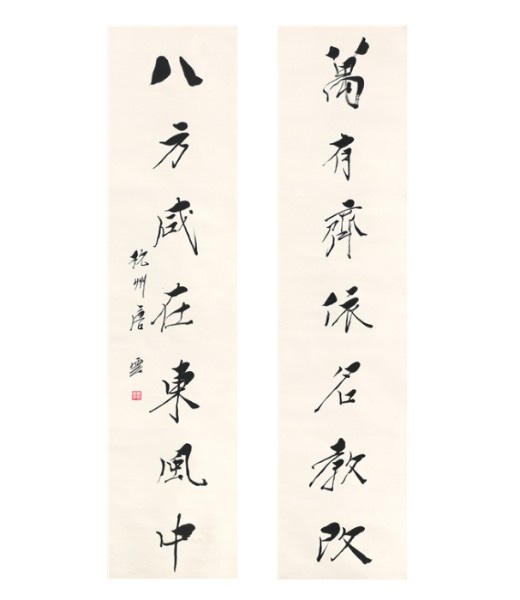 萬有齊依名教改
八方咸在東風中
杭州唐雲